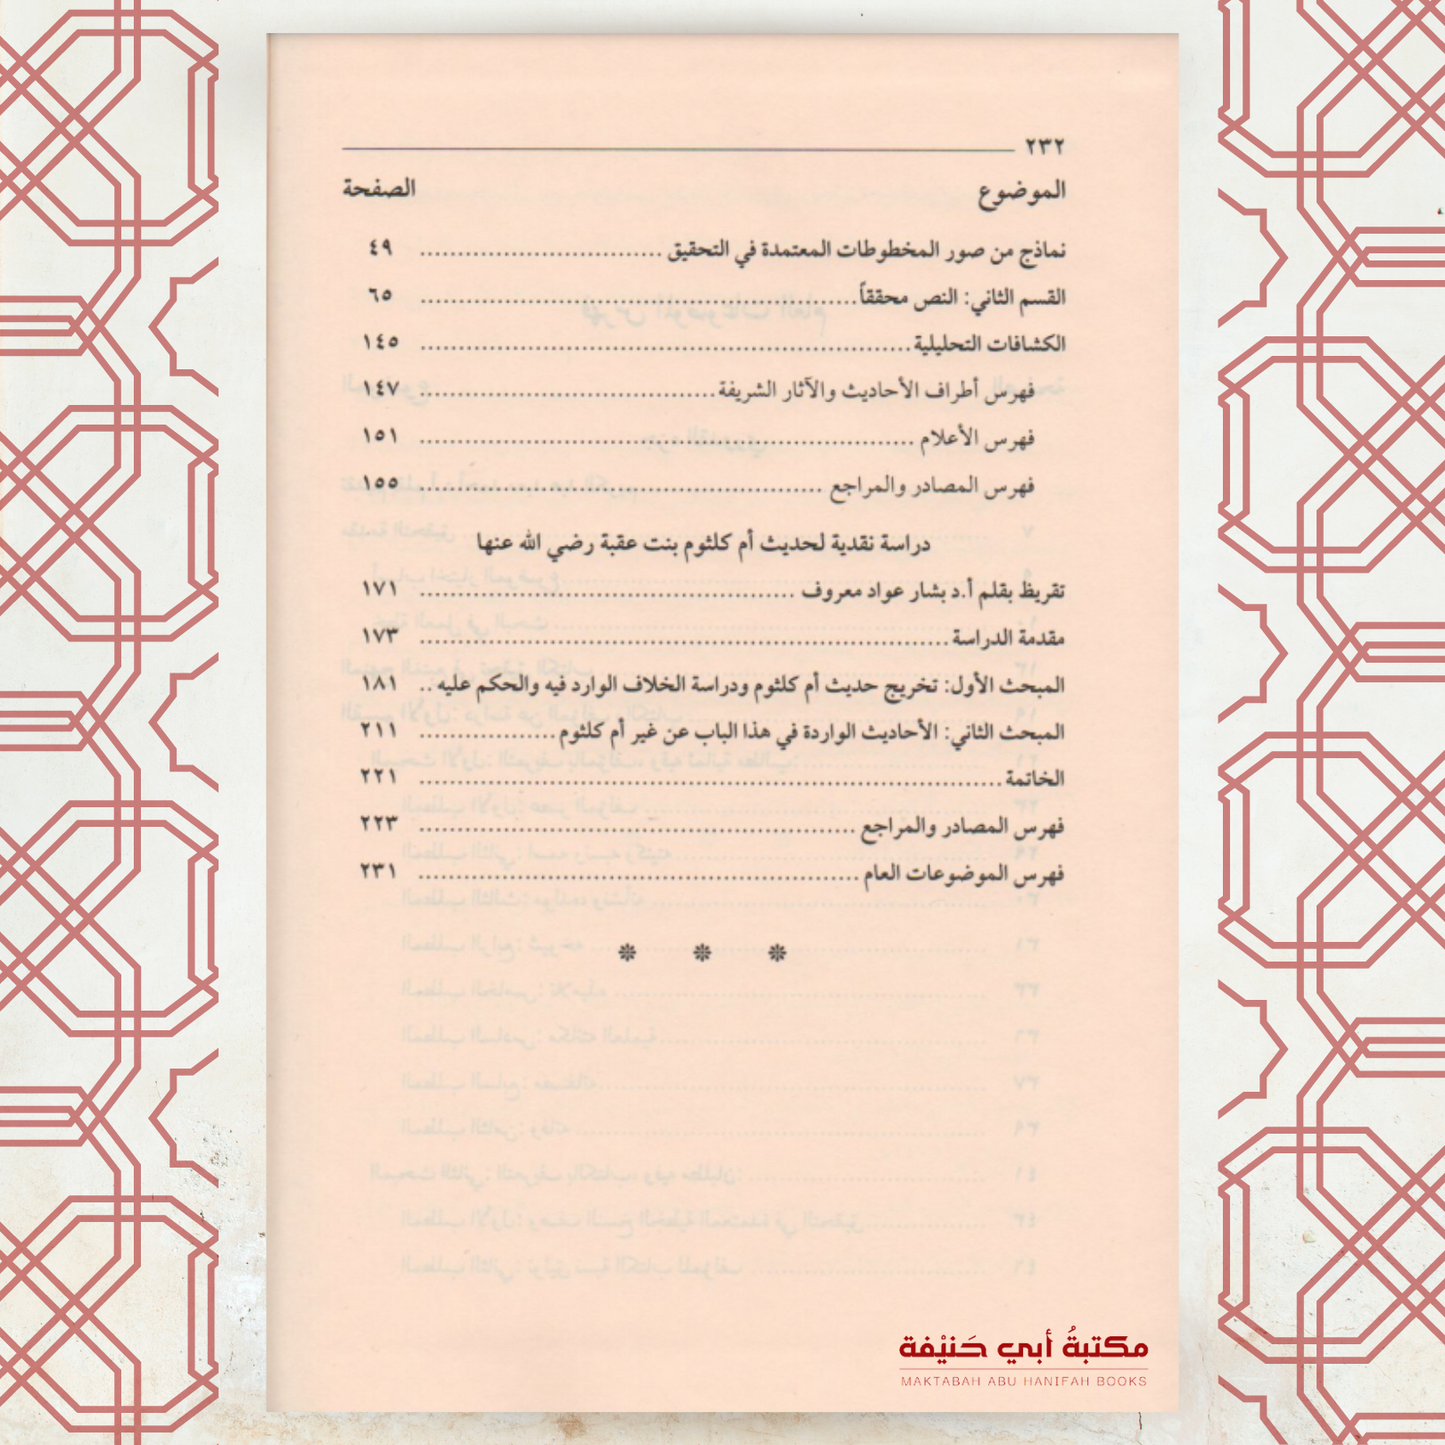 ٢٣٢
الموضوع الصفحة
نماذج من صور المخطوطات المعتمدة في التحقيق ................................ ٤٩
القسم الثاني: النص محققاً .......................................................... ٦٥
الكشافات التحليلية ................................................................. ١٤٥
فهرس أطراف الأحاديث والآثار الشريفة ....................................... ١٤٧
فهرس الأعلام ................................................................. ١٥١
فهرس المصادر والمراجع ..................................................... ١٥٥
دراسة نقدية لحديث أم كلثوم بنت عقبة رضي الله عنها
تقريظ بقلم أ.د بشار عواد معروف ................................................. ١٧١
مقدمة الدراسة ..................................................................... ١٧٣
المبحث الأول: تخريج حديث أم كلثوم ودراسة الخلاف الوارد فيه والحكم عليه .. ١٨١
المبحث الثاني: الأحاديث الواردة في هذا الباب عن غير أم كلثوم .................. ٢١١
الخاتمة ............................................................................. ٢٢١
فهرس المصادر والمراجع .......................................................... ٢٢٣
فهرس الموضوعات العام .......................................................... ٢٣١
مكتبةُ أبي حَنيْفة
MAKTABAH ABU HANIFAH BOOKS